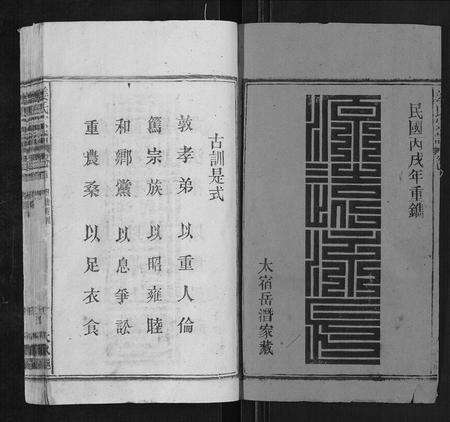 民國丙戌年重鐫
太宿岳潛家藏
古訓是式
敦孝弟以重人倫
篤宗族以昭雍睦
和鄉黨以息爭訟
重農桑以足衣食